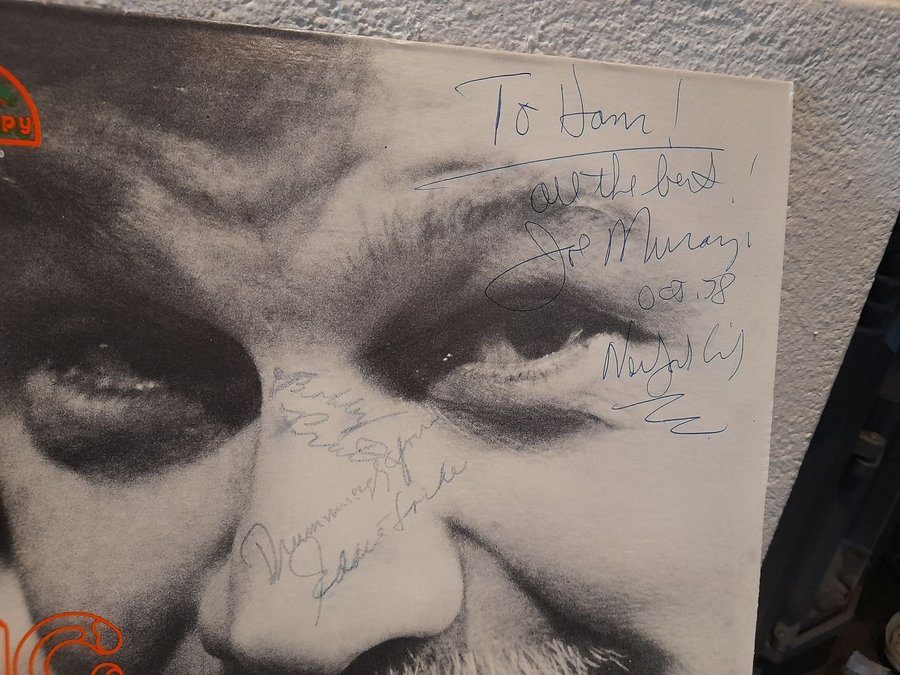 PY
To Hans!
all the best!
Joe Muranyi
Oct. 78
New York City
Drummingly Yours
Eddie Locke